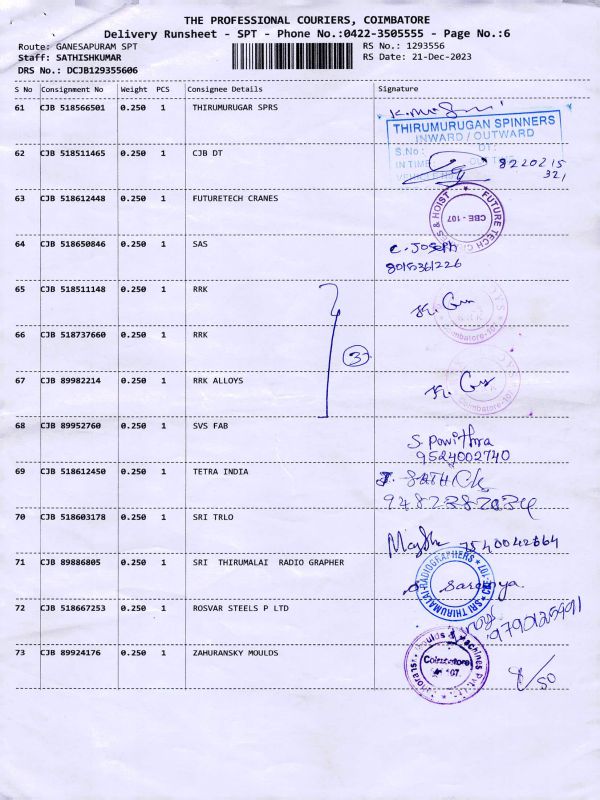 THE PROFESSIONAL COURIERS, COIMBATORE
Delivery Runsheet - SPT - Phone No.:0422-3505555 - Page No.:6
Route: GANESAPURAM SPT
RS No.: 1293556
Staff: SATHISHKUMAR
RS Date: 21-Dec-2023
DRS No.: DCJB129355606
S No Consignment No Weight PCS Consignee Details Signature
61 CJB 518566501 0.250 1 THIRUMURUGAR SPRS
THIRUMURUGAN SPINNERS
INWARD / OUTWARD
S.No: DT:
IN TIME
62 CJB 518511465 0.250 1 CJB DT
8220215
321
63 CJB 518612448 0.250 1 FUTURETECH CRANES
FUTURE TECH
& HOIST
CBE - 107
64 CJB 518650846 0.250 1 SAS
C. JOSEPH
8015361226
65 CJB 518511148 0.250 1 RRK
66 CJB 518737660 0.250 1 RRK
3
67 CJB 89982214 0.250 1 RRK ALLOYS
Coimbatore-107
68 CJB 89952760 0.250 1 SVS FAB
S. Pavithra
9524002740
69 CJB 518612450 0.250 1 TETRA INDIA
70 CJB 518603178 0.250 1 SRI TRLO
7540042664
71 CJB 89886805 0.250 1 SRI THIRUMALAI RADIO GRAPHER
SRI THIRUMALAI RADIOGRAPHERS
72 CJB 518667253 0.250 1 ROSVAR STEELS P LTD
73 CJB 89924176 0.250 1 ZAHURANSKY MOULDS
Zahoransky Moulds & Machines Pvt. Ltd.
Coimbatore